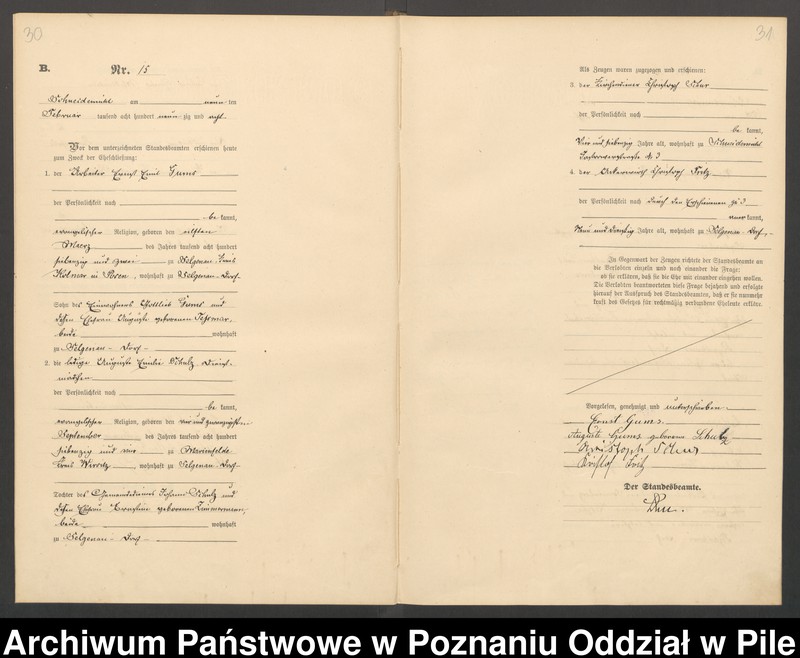 30
B.
Nr. 15
Schneidemühl am neun ten
Februar tausend acht hundert neun zig und acht
Vor dem unterzeichneten Standesbeamten erschienen heute
zum Zweck der Eheschließung:
1. der Arbeiter Ernst Emil Gums
der Persönlichkeit nach
be kannt,
evangelischer Religion, geboren den elften
Maerz des Jahres tausend acht hundert
siebenzig und zwei zu Selgenau Kreis
Kolmar in Posen, wohnhaft zu Selgenau-Dorf
Sohn des Einwohners Gottlieb Gums und
dessen Ehefrau Auguste geborenen
beide wohnhaft
zu Selgenau-Dorf
2. die ledige Auguste Emilie Schulz Dienst-
mädchen
der Persönlichkeit nach
be kannt,
evangelischer Religion, geboren den vier und zwanzigsten
September des Jahres tausend acht hundert
siebenzig und zu Marienfelde
Kreis Wirsitz, wohnhaft zu Selgenau-Dorf
Tochter des Johann Schulz und
dessen Ehefrau geborenen Zimmermann,
beide wohnhaft
zu Selgenau-Dorf
31
Als Zeugen waren zugezogen und erschienen:
3. der Christoph
der Persönlichkeit nach
be kannt,
Vier und siebenzig Jahre alt, wohnhaft zu Schneidemühl
3
4. der Ackerwirth Christoph Fritz
der Persönlichkeit nach durch den Erschienenen zu 3
aner kannt,
Neun und dreißig Jahre alt, wohnhaft zu Selgenau-Dorf
In Gegenwart der Zeugen richtete der Standesbeamte an
die Verlobten einzeln und nach einander die Frage:
ob sie erklären, daß sie die Ehe mit einander eingehen wollen.
Die Verlobten beantworteten diese Frage bejahend und erfolgte
hierauf der Ausspruch des Standesbeamten, daß er sie nunmehr
kraft des Gesetzes für rechtmäßig verbundene Eheleute erkläre.
Vorgelesen, genehmigt und unterschrieben
Ernst Gums.
Auguste Gums geborene Schulz
Christoph
Kristof Fritz
Der Standesbeamte.
Archiwum Państwowe w Poznaniu Oddział w Pile